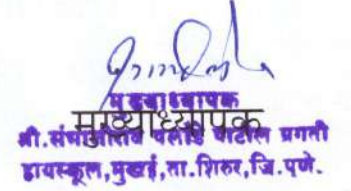 मुख्याध्यापक
मुख्याध्यापक
श्री.संभाजीराव पलांडे पाटील प्रगती
हायस्कूल,मुखई,ता.शिरुर,जि.पुणे.